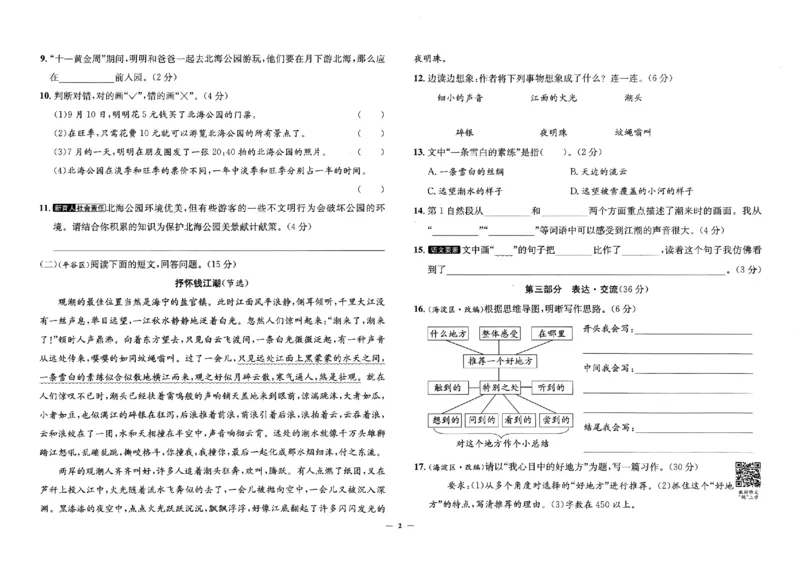 9. “十一黄金周”期间,明明和爸爸一起去北海公园游玩,他们要在月下游北海,那么应
在____________前入园。(2 分)
10. 判断对错,对的画“✓”,错的画“✕”。(4 分)
(1)9 月 10 日,明明花 5 元钱买了北海公园的门票。 (    )
(2)在旺季,只需花费 10 元就可以游览北海公园的所有景点了。 (    )
(3)7 月的一天,明明在朋友圈发了一张 20:40 拍的北海公园的照片。 (    )
(4)北海公园在淡季和旺季的票价不同,一年中淡季和旺季分别占一半的时间。
(    )
11. 新育人 社会责任 北海公园环境优美,但有些游客的一些不文明行为会破坏公园的环
境。请结合你积累的知识为保护北海公园美景献计献策。(4 分)
(二)(平谷区)阅读下面的短文,回答问题。(15 分)
抒怀钱江潮(节选)
观潮的最佳位置当然是海宁的盐官镇。此时江面风平浪静,侧耳倾听,千里大江没
有一丝声息,举目远望,一江秋水静静地泛着白光。忽然人们惊叫起来:“潮来了,潮来
了!”顿时人声鼎沸。向着东方望去,只见白云飞渡间,一条白光微微泛起,有一种声音
从远处传来,嘤嘤的如同蚊蝇嗡叫。过了一会儿,只见远处江面上黑蒙蒙的水天之间,
一条雪白的素练似合似散地横江而来,观之好似月碎云散,寒气逼人,然是壮观。就在
人们惊叹不已时,潮头已经挟着雷鸣般的声响铺天盖地来到眼前,惊湍跳沫,大者如瓜,
小者如豆,也似满江的碎银在狂泻,后浪推着前浪,前浪引着后浪,浪拍着云,云吞着浪,
云和浪绞在了一团,水和天相撞在半空中,声音响彻云霄。远处的潮水就像千万头雄狮
踏江怒吼,乱礁乱跳,撕咬格斗,你撞我,我撞你,最后一起化成那水烟细沫,付之东流。
两岸的观潮人齐齐叫好,许多人追着潮头狂奔,欢叫,腾跃。有人点燃了纸团,又在
芦杆上投入江中,火光随着流水飞奔似的去了,一会儿被抛向空中,一会儿又被沉入深
渊。黑漆漆的夜空中,点点火光跃跃沉沉,飘飘浮浮,好像江底翻起了许多闪闪发光的
夜明珠。
12. 边读边想象:作者将下列事物想象成了什么? 连一连。(6 分)
细小的声音 江面的火光 潮头
碎银 夜明珠 蚊蝇嗡叫
13. 文中“一条雪白的素练”是指(    )。(2 分)
A. 一条雪白的丝绸 B. 天边的流云
C. 远望潮水的样子 D. 远望被雪覆盖的小河的样子
14. 第 1 自然段从________和________两个方面重点描述了潮来时的画面。我从
“________”“________”等词语中可以感受到江潮的声音很大。(4 分)
15. 语文要素 文中画“____”的句子把________比作了________,读着这个句子我仿佛看
到了____________________________________。(3 分)
第三部分 表达·交流(36 分)
16. (海淀区·改编)根据思维导图,明晰写作思路。(6 分)
什么地方 整体感受 在哪里
推荐一个好地方
触到的 特别之处 听到的
想到的 问到的 看到的 尝到的
对这个地方作个小总结
开头我会写:
中间我会写:
结尾我会写:
17. (海淀区·改编)请以“我心目中的好地方”为题,写一篇习作。(30 分)
要求:(1)从多个角度对选择的“好地方”进行推荐。(2)抓住这个“好地
方”的特点,写清推荐的理由。(3)字数在 450 以上。
— 2 —